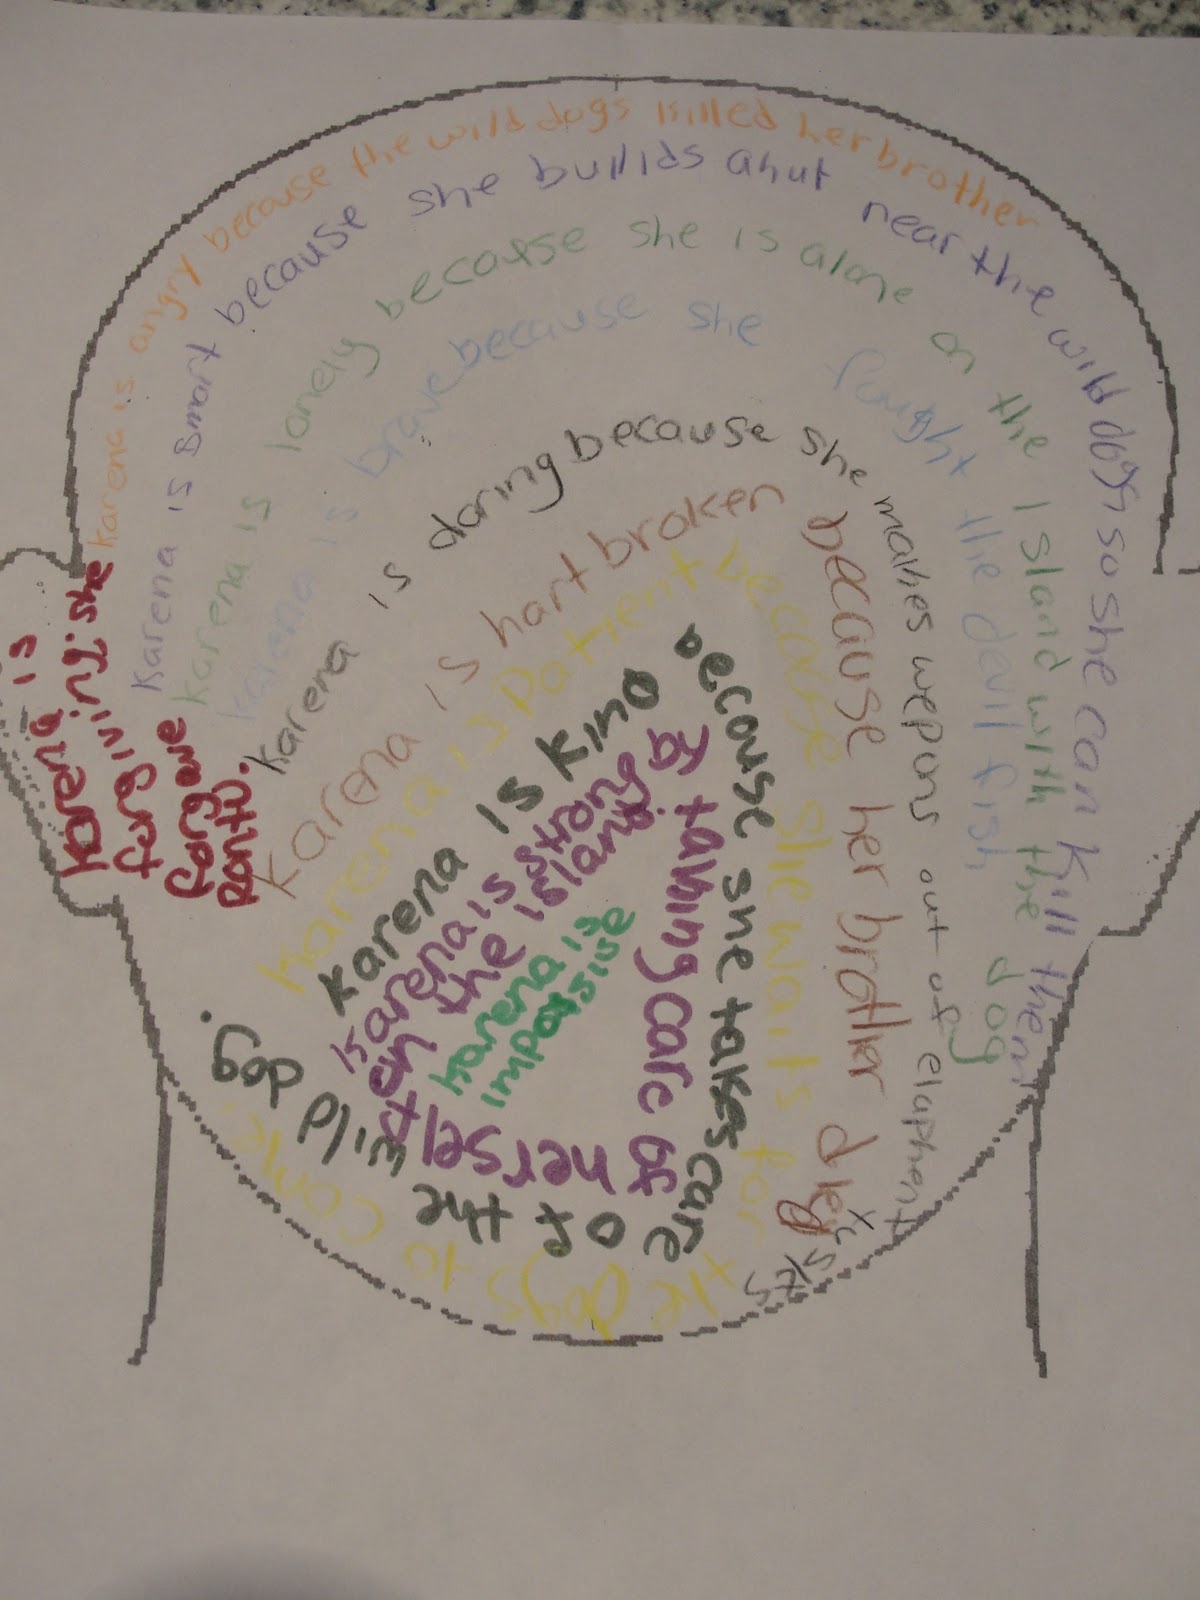 karena is angry because the wild dogs killed her brother
Karena is smart because she bullids a hut near the wild dogs so she can kill them
Karena is lonely because she is alone on the Island with the dog
karena is brave because she fought the devil fish
Karena is daring because she makes wepons out of elaphent
Karena is hart broken because her brothar
Karena is Patient because she waits for the dogs to come.
Karena is kind because she takes care of the wild dog.
Karena is strong by taking care of herself on the island
Karena is
impassive
Karena is
forgiving: she
forgave